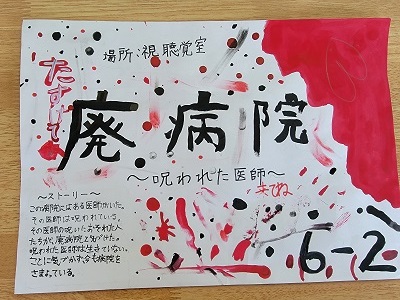 場所:視聴覚室
たすけて
廃病院
〜呪われた医師〜
来てね
〜ストーリー〜
この病院にはある医師がいた。
その医師は呪われている。
その医師の呪いにおそわれた人
たちが、廃病院と名づけた。
呪われた医師は生きていない
ことに気づかず、今も病院を
さまよっている。
6-2